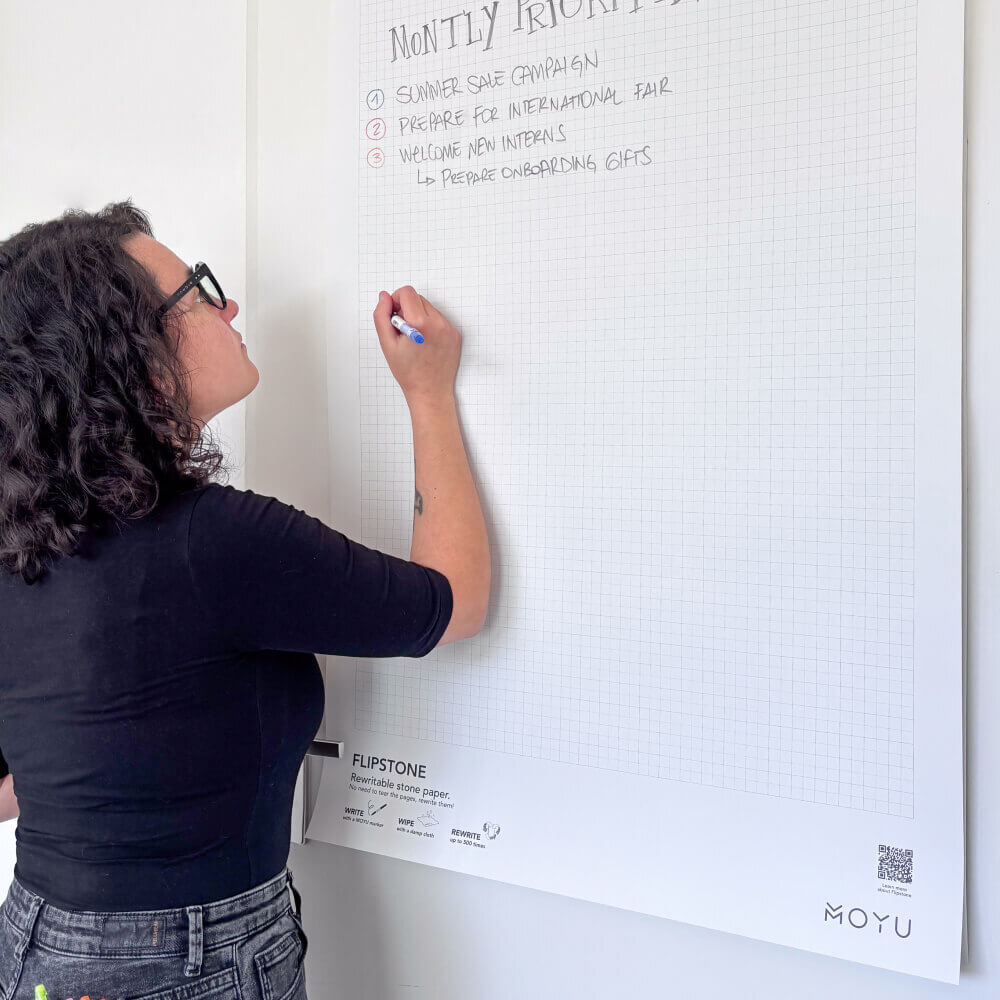 MONTLY PRIORITIES
① SUMMER SALE CAMPAIGN
② PREPARE FOR INTERNATIONAL FAIR
③ WELCOME NEW INTERNS
↳ PREPARE ONBOARDING GIFTS
FLIPSTONE
Rewritable stone paper.
No need to tear the pages, rewrite them!
WRITE
with a MOYU marker
WIPE
with a damp cloth
REWRITE
up to 500 times
Learn more
about Flipstone
MOYU